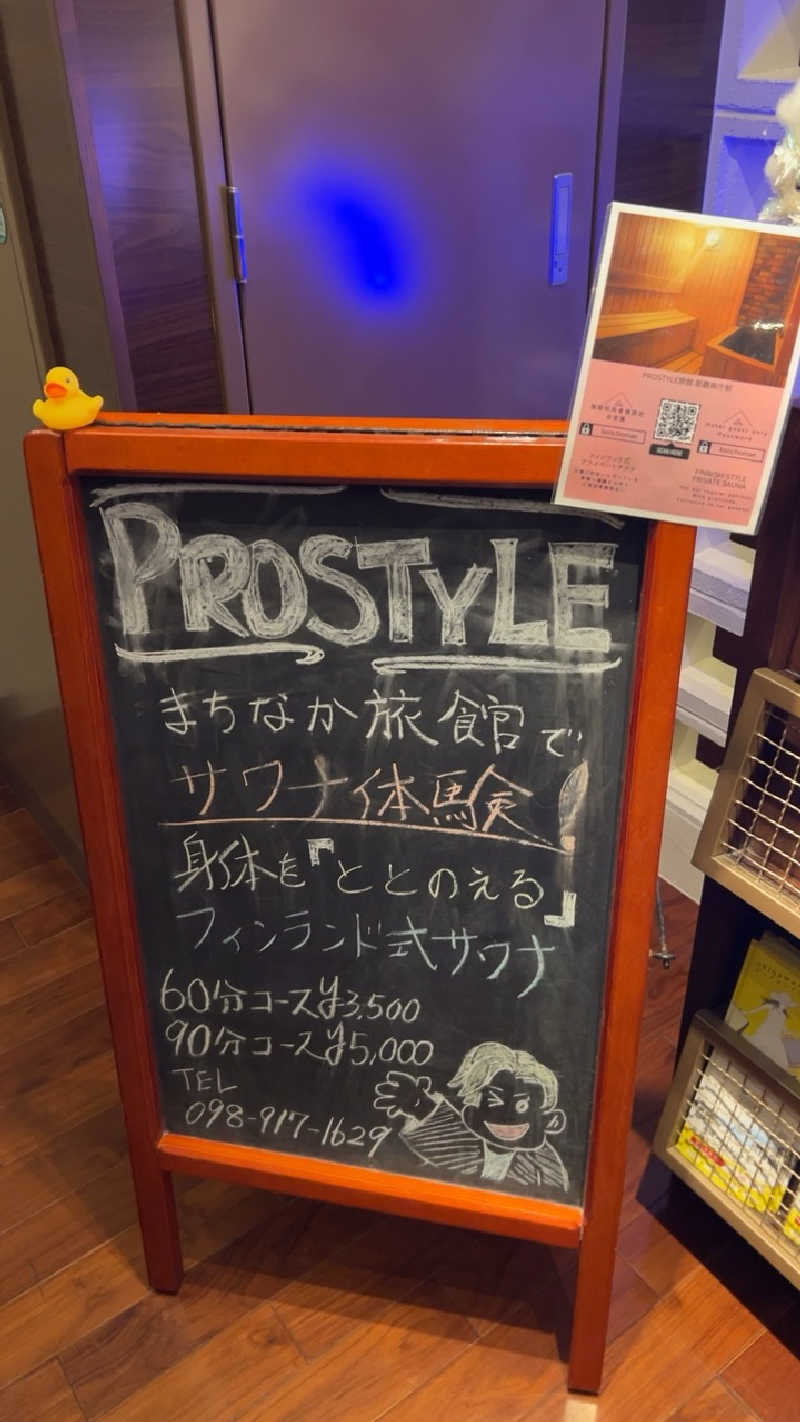 PROSTYLE
まちなか旅館で
サウナ体験!
身体を『ととのえる』
フィンランド式サウナ
60分コース¥3,500
90分コース¥5,000
TEL
098-917-1629
PROSTYLE旅館 那覇県庁前
FINNISH STYLE
PRIVATE SAUNA